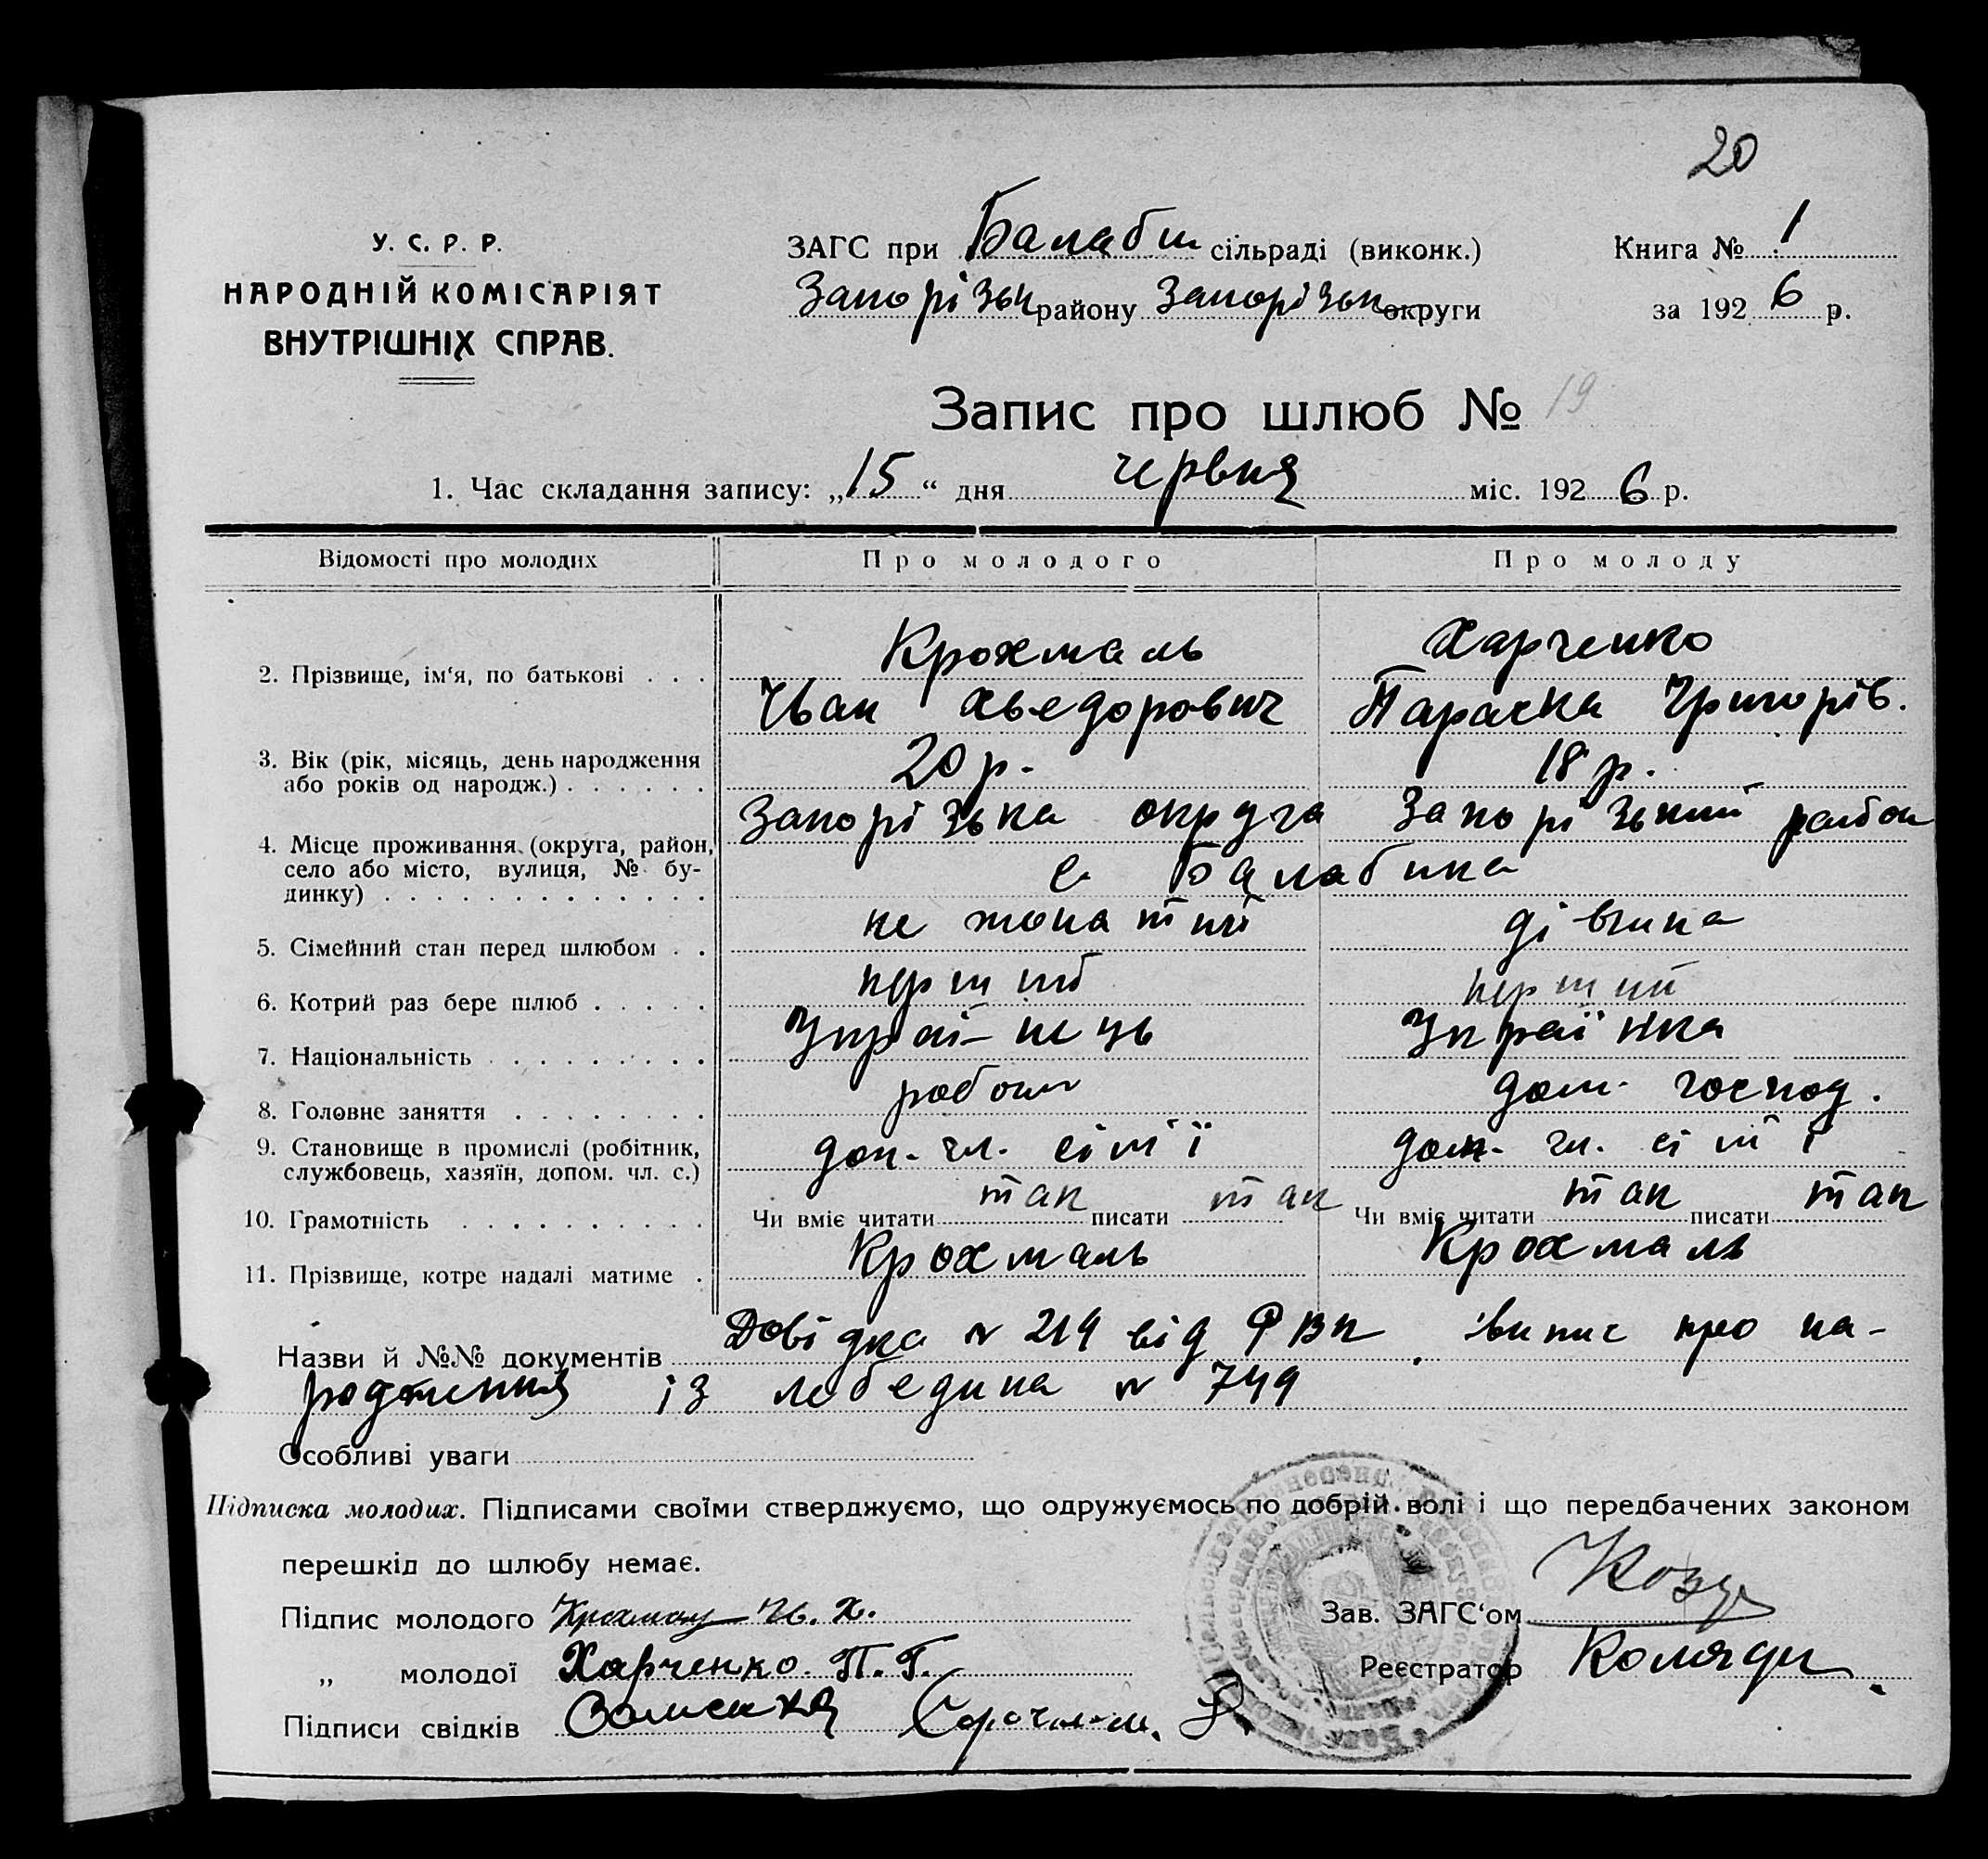 20
У. С. Р. Р.
НАРОДНІЙ КОМІСАРІЯТ
ВНУТРІШНІХ СПРАВ.
ЗАГС при Балабин сільраді (виконк.)
Запорізьк району Запорізьк округи
Книга № 1
за 1926 р.
Запис про шлюб № 19
1. Час складання запису: „15“ дня червня міс. 1926 р.
Відомості про молодих Про молодого Про молоду
2. Прізвище, ім‘я, по батькові . . . Крохмаль Харченко
Іван Хведорович Параска Григорів.
3. Вік (рік, місяць, день народження
або років од народж.) . . . . . . 20 р. 18 р.
4. Місце проживання (округа, район,
село або місто, вулиця, № бу-
динку) . . . . . . . . . . . . . Запорізька округа Запорізький район
с Балабина
5. Сімейний стан перед шлюбом . . не жонатий дівчина
6. Котрий раз бере шлюб . . . . . перший перший
7. Національність . . . . . . . . . Украї-нець Українка
8. Головне заняття . . . . . . . . дом. господ.
9. Становище в промислі (робітник,
службовець, хазяїн, допом. чл. с.) доп. чл. сім'ї дом. чл. сім'ї
10. Грамотність . . . . . . . . . . Чи вміє читати так писати так Чи вміє читати так писати так
11. Прізвище, котре надалі матиме . Крохмаль Крохмаль
Назви й №№ документів Довідка № 219 від РВК. випис про на-
родження із Лебедина № 749
Особливі уваги
Підписка молодих. Підписами своїми стверджуємо, що одружуємось по добрій волі і що передбачених законом
перешкід до шлюбу немає.
Підпис молодого Крохмаль Ів. Х.
„ молодої Харченко. П. Г.
Підписи свідків
Зав. ЗАГС‘ом
Реєстратор